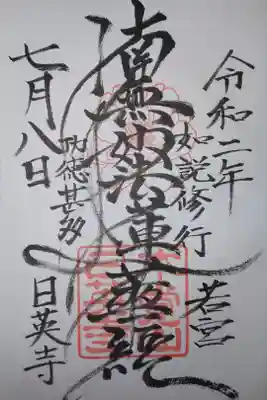 令和二年
若宮
如説修行
南無妙法蓮華経
功徳甚多
七月八日
日英寺